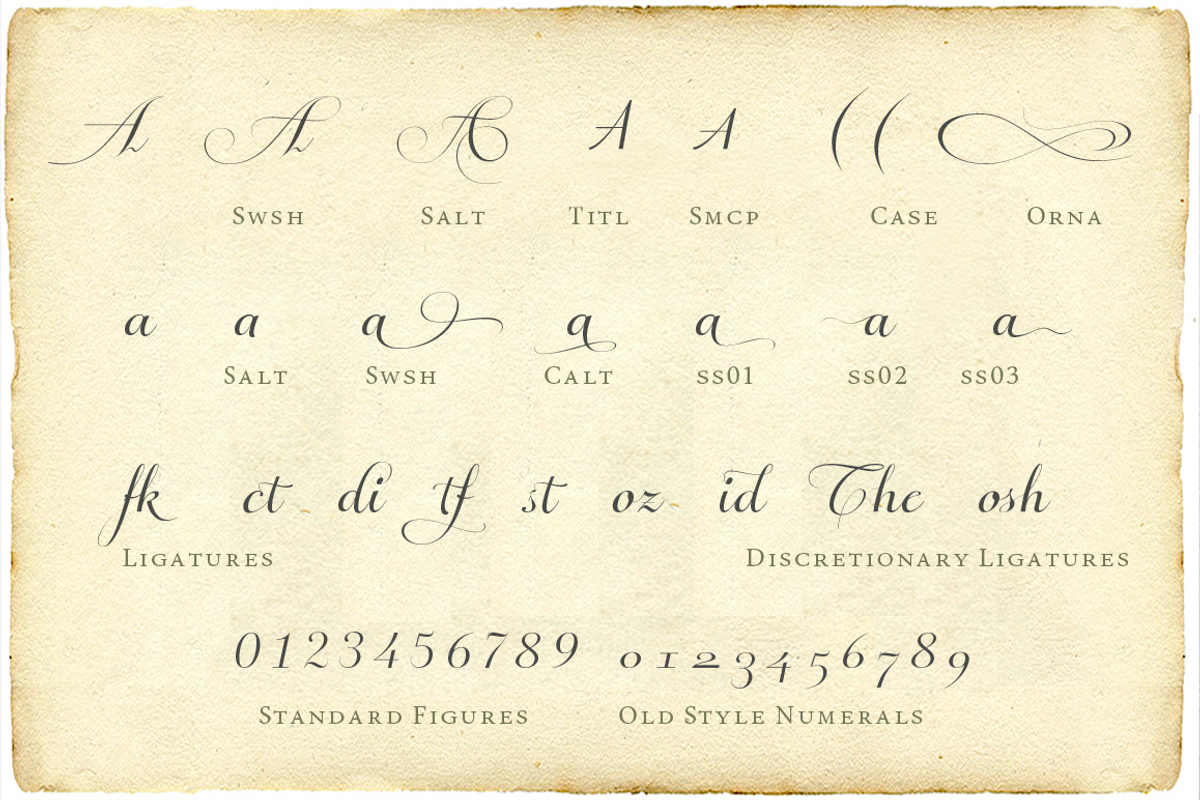 A A A A A ( (
Swsh Salt Titl Smcp Case Orna
a a a a a a a
Salt Swsh Calt ss01 ss02 ss03
fk ct di tf st oz id The osh
Ligatures Discretionary Ligatures
0123456789 0123456789
Standard Figures Old Style Numerals